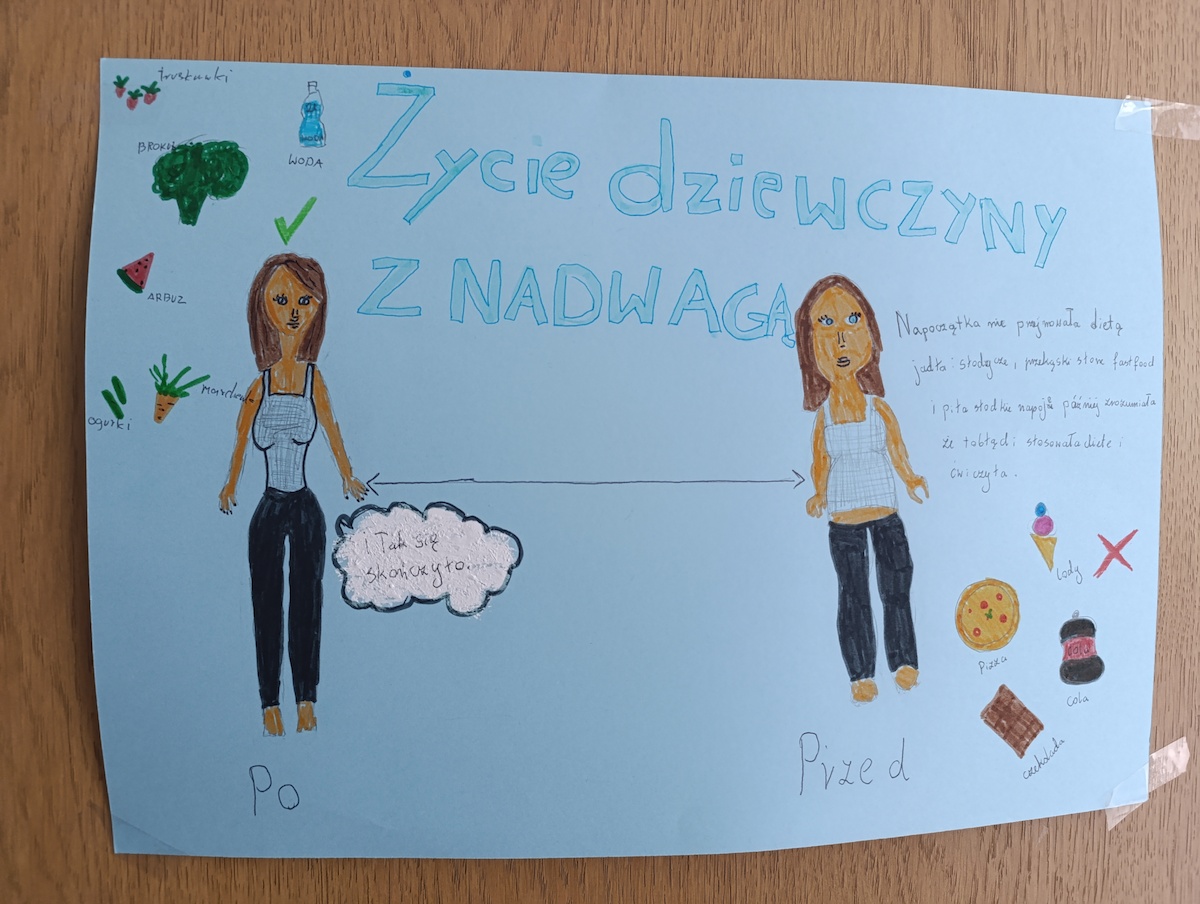 truskawki
WODA
Życie dziewczyny
z NADWAGĄ
ARBUZ
ogórki
Napoczątka nie przejmowała dietą
jadła słodycze, przekąski słone fastfood
i piła słodkie napoje później zrozumiała
że to błąd i stosowała diete i
ćwiczyła.
i Tak się
skończyło.
lody
Pizza
cola
czekolada
Po
Przed